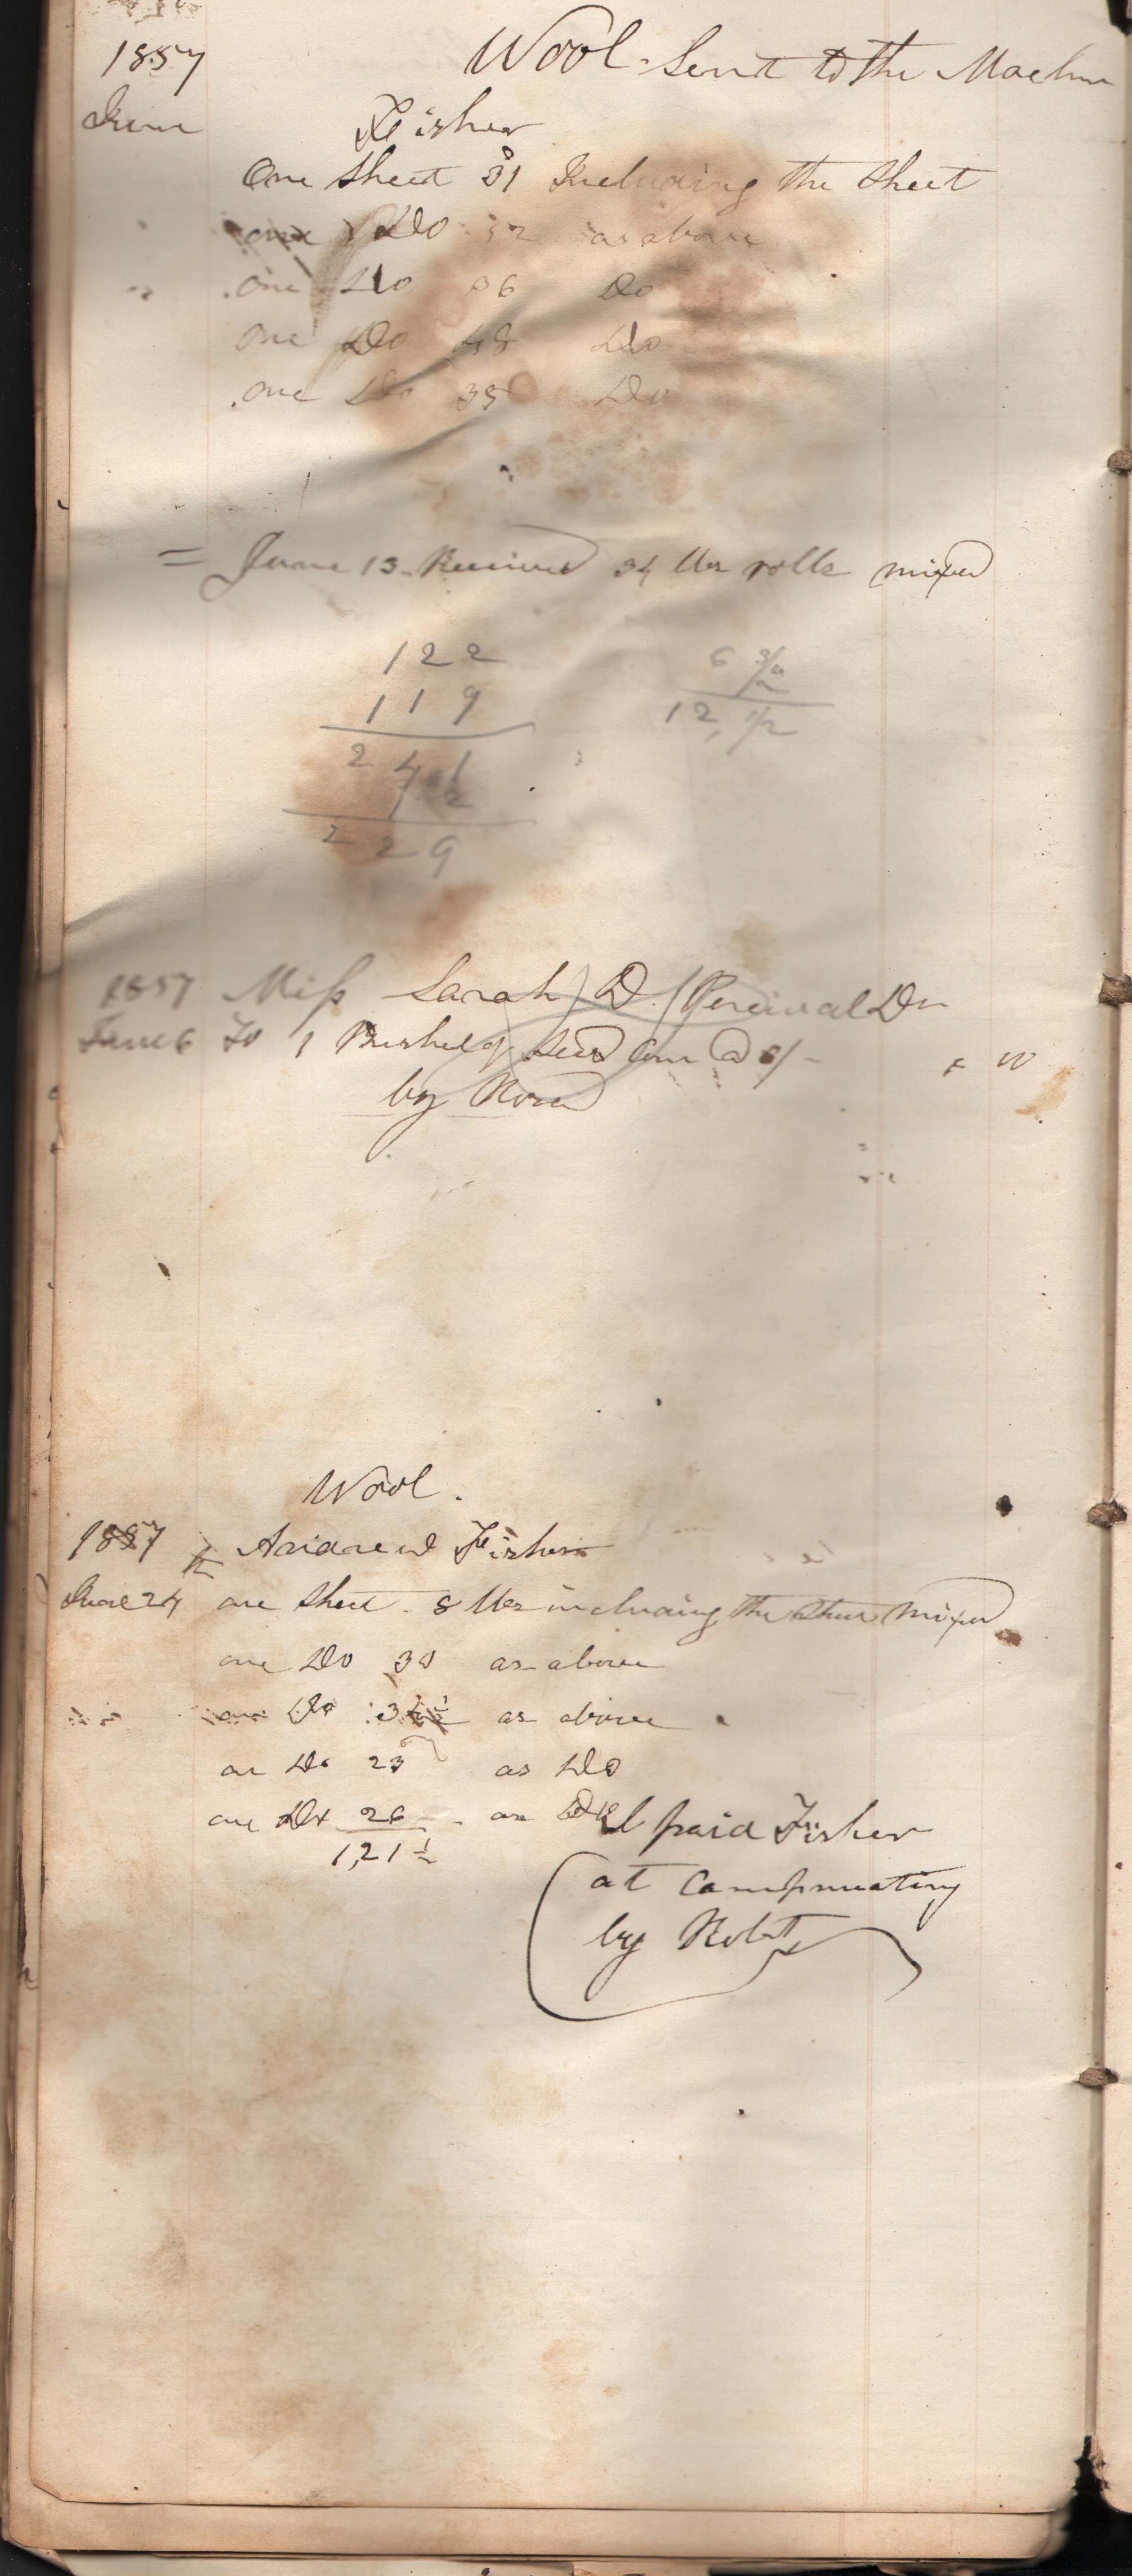 1857 Wool Sent to the Machine
June Fisher
One Sheet 31 Including the Sheet
one Do 32 as above
one Do 36 Do
one Do 48 Do
one Do 35 Do
= June 13 Received 34 lbs rolls mixed
122
119
241
12
229
6
12, 1/2
1857 Miss Sarah D. Percival Dr
June 6 To 1 Bushel of Seed Corn @ 6/-
by
Wool.
1857 Andrew Fisher
June 24 th one sheet 8 lbs including the sheet mixed
one Do 30 as above
one Do as above
one Do 23 as Do
one Do 26 as Do
1,21 1/2
I paid Fisher
at
by Robt